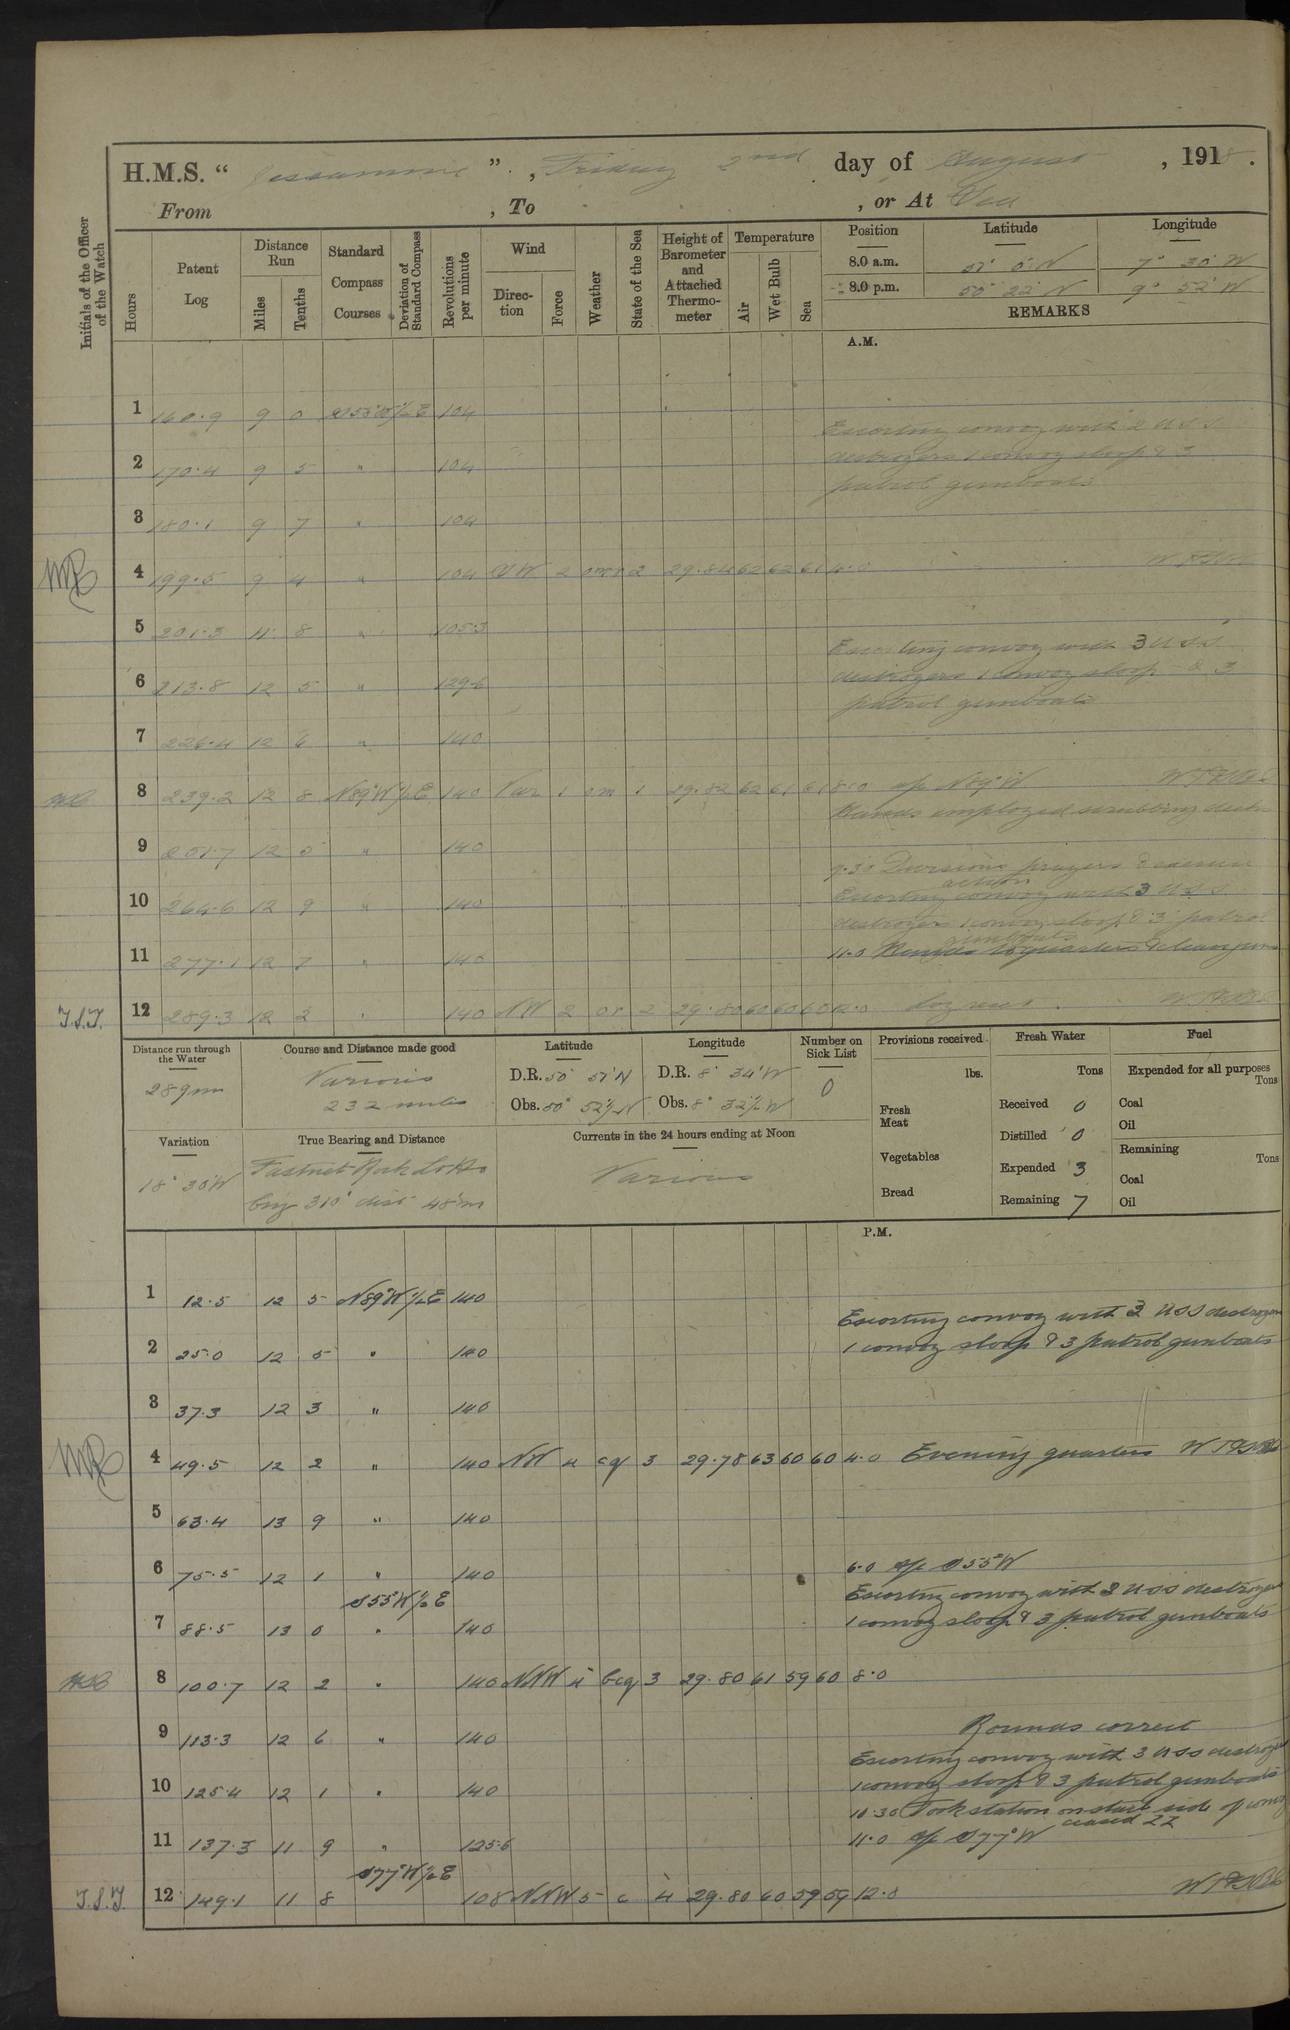 H.M.S. "Jessamine", Friday 2nd day of August, 1918.
From , To , or At Sea
Initials of the Officer of the Watch
Hours
Patent Log
Distance Run
Miles
Tenths
Standard Compass Courses
Deviation of Standard Compass
Revolutions per minute
Wind
Direction
Force
Weather
State of the Sea
Height of Barometer and Attached Thermometer
Temperature
Air
Wet Bulb
Sea
Position Latitude Longitude
8.0 a.m. 51° 6' N 7° 30' W
8.0 p.m. 50° 22' N 9° 52' W
REMARKS
A.M.
1 160.9 9 0 S55°W ½E 104
Escorting convoy with 2 USS
2 170.4 9 5 " 104
destroyers 1 convoy sloop & 3
patrol gunboats
3 180.1 9 7 " 104
4 199.5 9 4 " 104 SW 2 omr 2 29.84 62 62 61 4.0
5 201.3 11 8 " 105.3
Escorting convoy with 3 USS
6 213.8 12 5 " 129.6
destroyers 1 convoy sloop & 3
patrol gunboats
7 226.4 12 6 " 140
8 239.2 12 8 N89°W ½E 140 Var 1 om 1 29.82 62 61 61 8.0 a/c N89°W
Hands employed scrubbing decks
9 251.7 12 5 " 140
9.30 Divisions prayers & exercise
action
10 264.6 12 9 " 140
Escorting convoy with 3 USS
destroyers 1 convoy sloop & 3 patrol
gunboats
11 277.1 12 7 " 140
11.0 Hands to quarters & clean guns
T.S.T. 12 289.3 12 2 " 140 NW 2 or 2 29.80 60 60 60 12.0
Distance run through the Water
289 m
Course and Distance made good
Various
232 miles
Latitude
D.R. 50° 51' N
Obs. 50° 52½' N
Longitude
D.R. 8° 34' W
Obs. 8° 32½' W
Number on Sick List
0
Provisions received
lbs.
Fresh Meat
Vegetables
Bread
Fresh Water
Tons
Received 0
Distilled 0
Expended 3
Remaining 7
Fuel
Expended for all purposes
Tons
Coal
Oil
Remaining
Tons
Coal
Oil
Variation
18° 30' W
True Bearing and Distance
Fastnet Rock Lt Ho
brg 310° dist 48' m
Currents in the 24 hours ending at Noon
Various
P.M.
1 12.5 12 5 N89°W ½E 140
Escorting convoy with 3 USS destroyers
2 25.0 12 5 " 140
1 convoy sloop & 3 patrol gunboats
3 37.3 12 3 " 140
4 49.5 12 2 " 140 NW 4 cq 3 29.78 63 60 60 4.0 Evening quarters
5 63.4 13 9 " 140
6 75.5 12 1 " 140
6.0 a/c S55°W
S55°W ½E
Escorting convoy with 3 USS destroyers
7 88.5 13 0 " 140
1 convoy sloop & 3 patrol gunboats
8 100.7 12 2 " 140 NNW 4 bcq 3 29.80 61 59 60 8.0
9 113.3 12 6 " 140
Rounds correct
Escorting convoy with 3 USS destroyers
10 125.4 12 1 " 140
1 convoy sloop & 3 patrol gunboats
10.30 Took station on starb side of convoy
ceased ZZ
11 137.3 11 9 " 125.6
11.0 a/c S77°W
S77°W ½E
T.S.T. 12 149.1 11 8 108 NNW 5 c 4 29.80 60 59 59 12.0